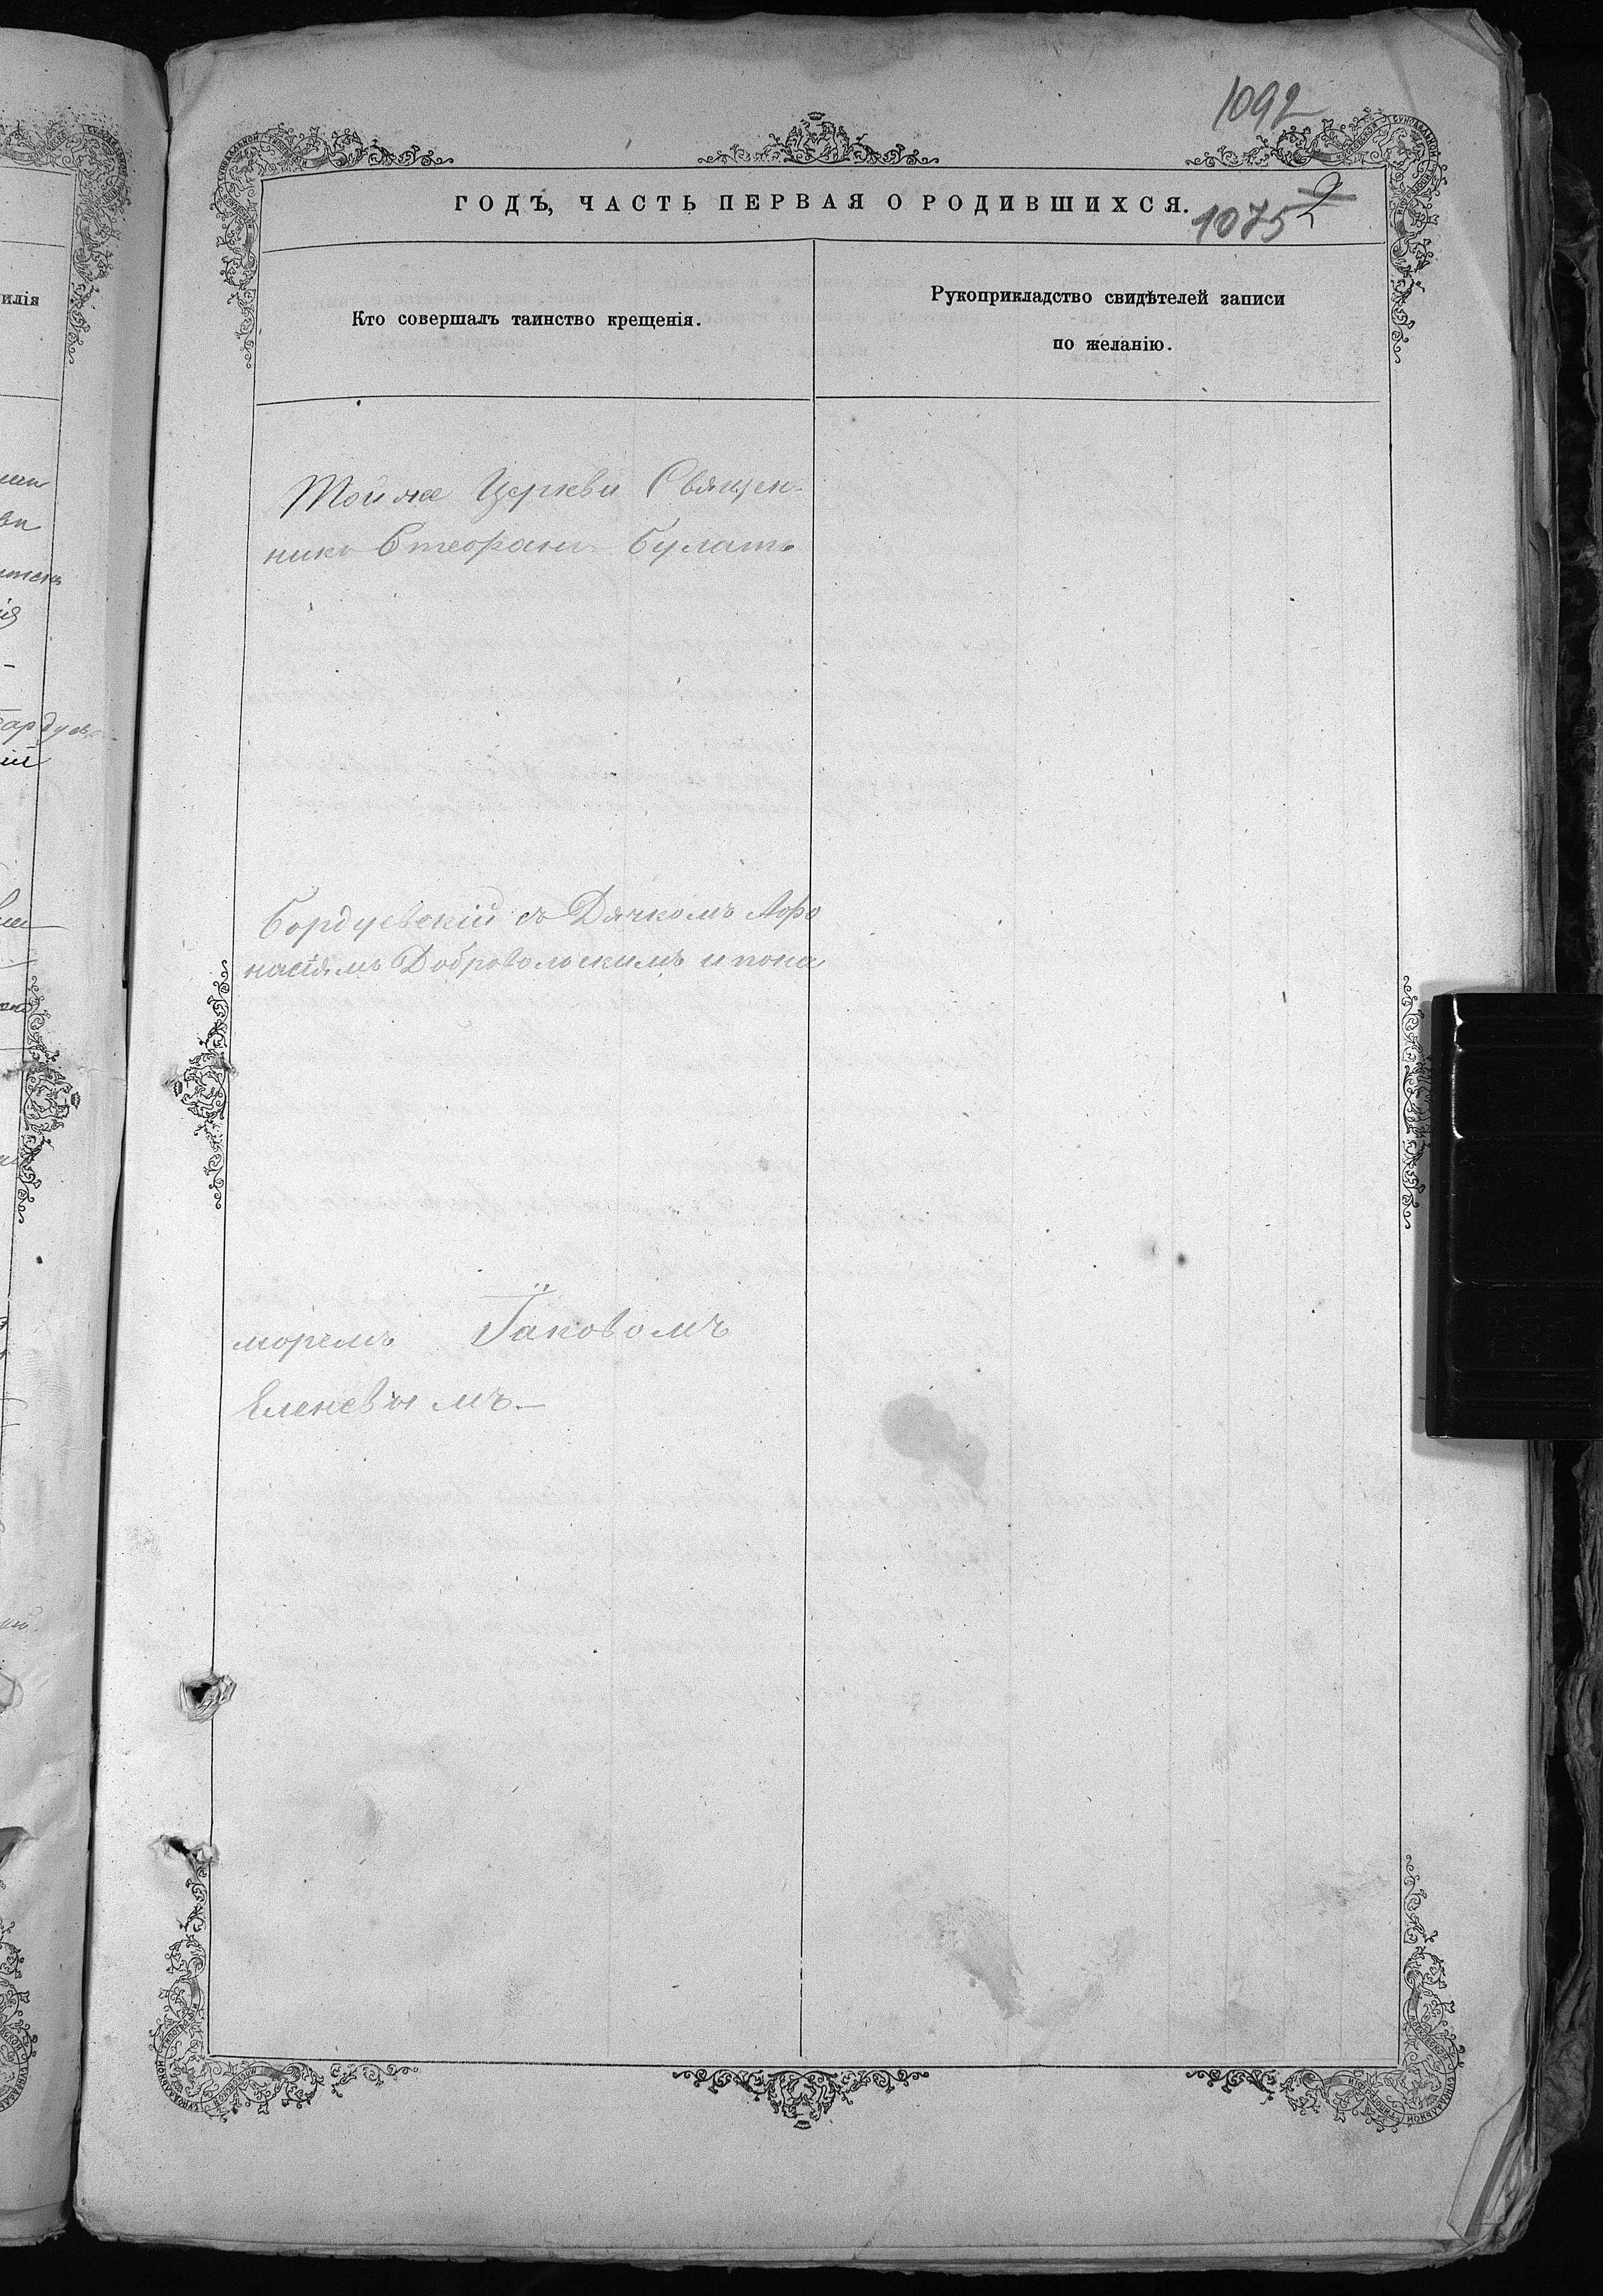 1092
ГОДЪ, ЧАСТЬ ПЕРВАЯ О РОДИВШИХСЯ.
1075 2
Кто совершалъ таинство крещенія.
Рукоприкладство свидѣтелей записи
по желанію.
Той же Церкви Священ-
никъ Стефанъ Булатъ
Бордуевскій съ Дячкомъ Афо
насіямъ Добровольскимъ и поно
моремъ Іаковомъ
Еленевымъ.—
илія